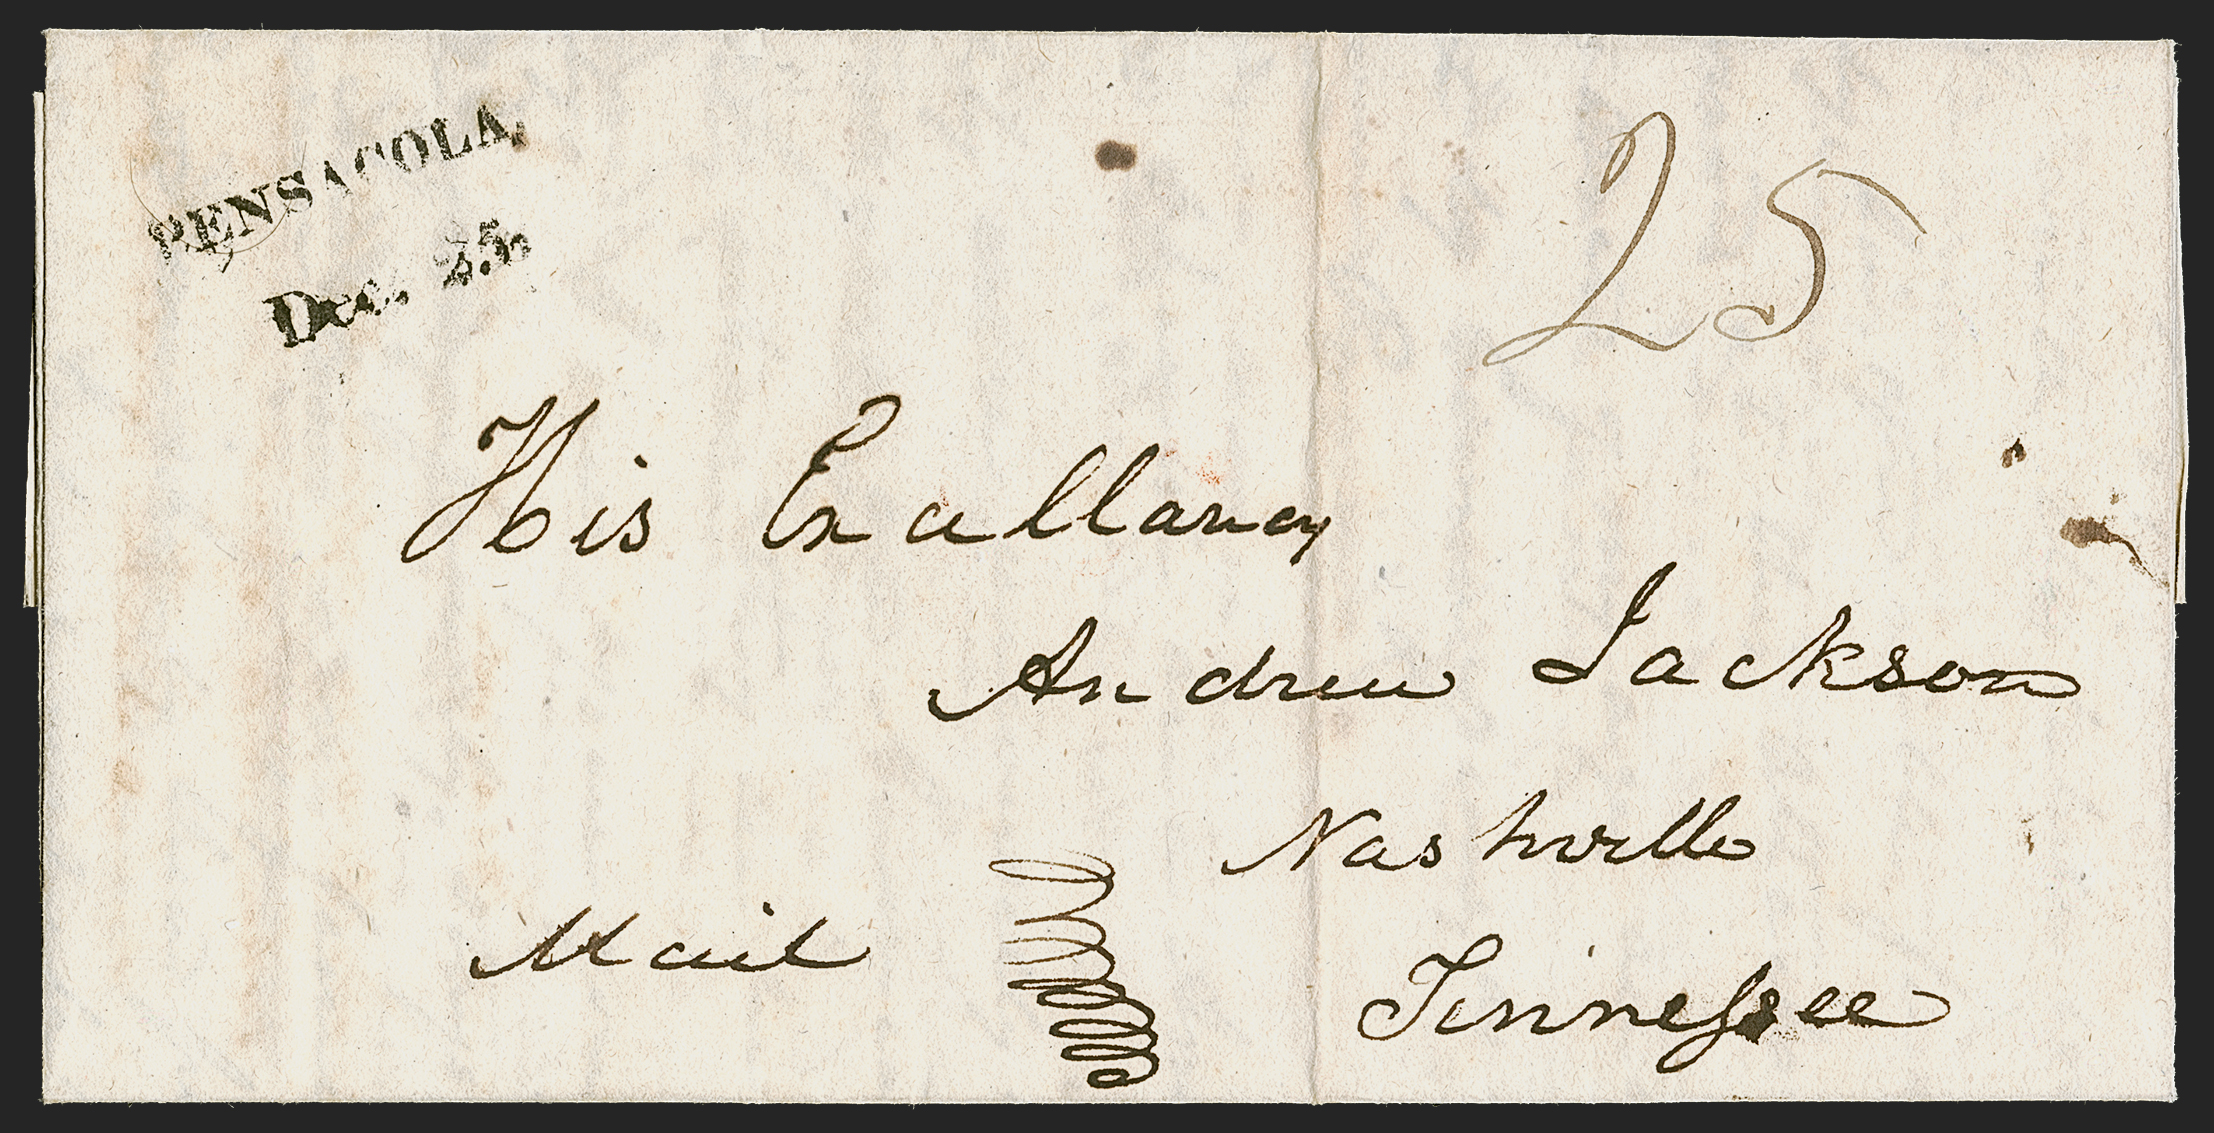 PENSACOLA,
Dec. 25,
25
His Excellancy
Andrew Jackson
Nashville
Mail
Tennessee